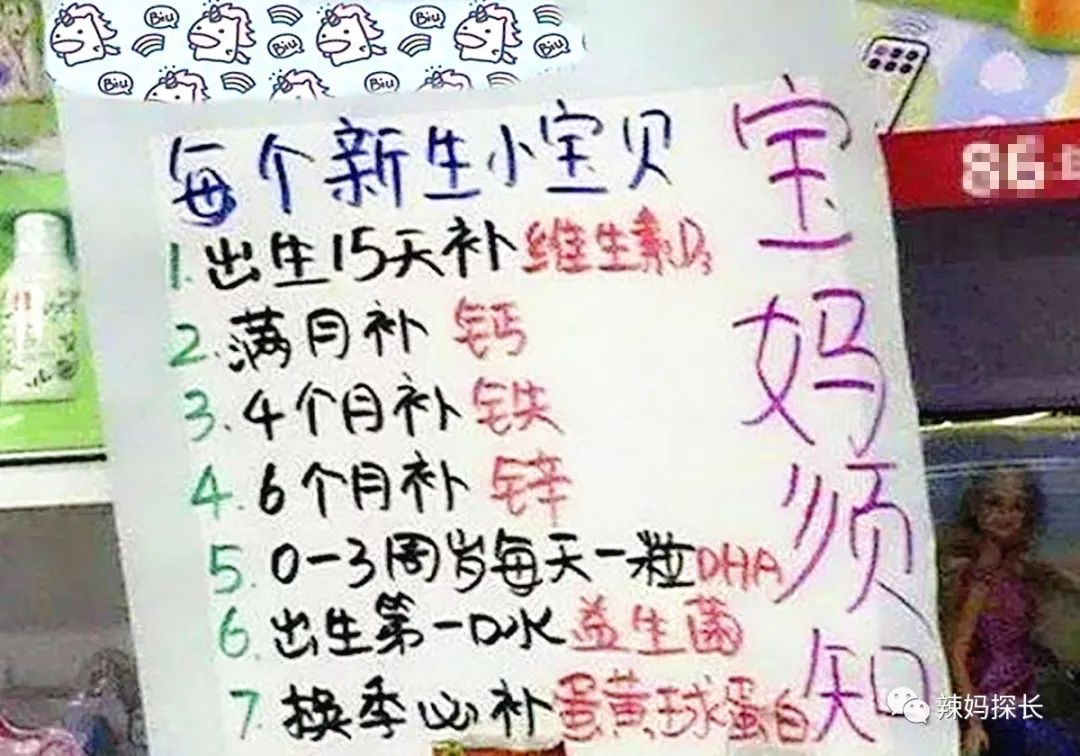 Biu
Biu
Biu
Biu
Biu
Biu
Biu
每个新生小宝贝
1.出生15天补维生素D3
2.满月补钙
3.4个月补铁
4.6个月补锌
5.0-3周岁每天一粒DHA
6.出生第一口水益生菌
7.换季必补蛋黄球蛋白
宝妈须知
86
辣妈探长